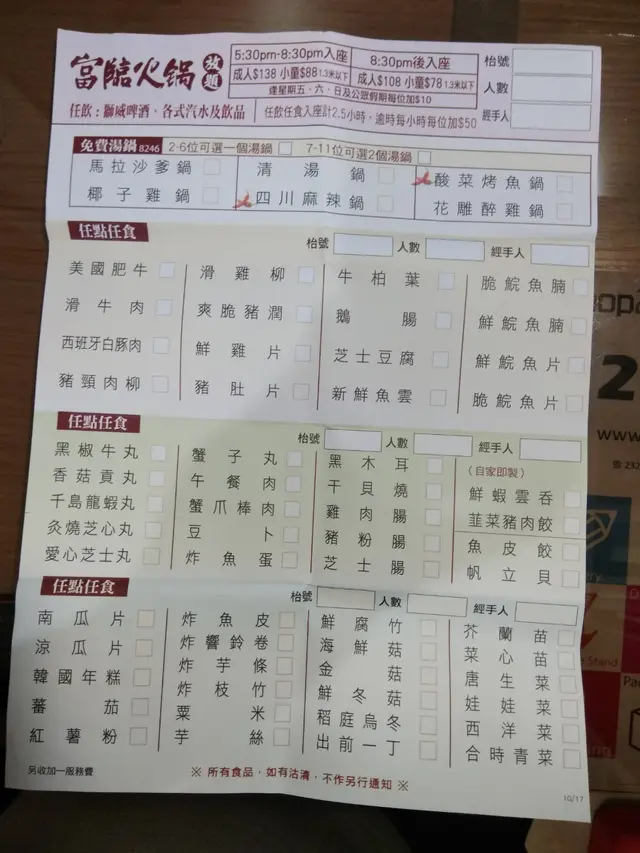 富臨火鍋放題
5:30pm-8:30pm入座 8:30pm後入座
成人$138 小童$88 1.3米以下 成人$108 小童$78 1.3米以下
逢星期五、六、日及公眾假期每位加$10
枱號
人數
經手人
任飲:獅威啤酒、各式汽水及飲品
任飲任食入座計2.5小時,逾時每小時每位加$50
免費湯鍋 8246 2-6位可選一個湯鍋 7-11位可選2個湯鍋
馬拉沙爹鍋 清湯鍋 酸菜烤魚鍋
椰子雞鍋 四川麻辣鍋 花雕醉雞鍋
任點任食 枱號 人數 經手人
美國肥牛 滑雞柳 牛柏葉 脆鯇魚腩
滑牛肉 爽脆豬潤 鵝腸 鮮鯇魚腩
西班牙白豚肉 鮮雞片 芝士豆腐 鮮鯇魚片
豬頸肉柳 豬肚片 新鮮魚雲 脆鯇魚片
任點任食 枱號 人數 經手人
黑椒牛丸 蟹子丸 黑木耳 (自家即製)
香菇貢丸 午餐肉 干貝燒 鮮蝦雲吞
千島龍蝦丸 蟹爪棒肉 雞肉腸 韮菜豬肉餃
灸燒芝心丸 豆卜 豬粉腸 魚皮餃
愛心芝士丸 炸魚蛋 芝士腸 帆立貝
任點任食 枱號 人數 經手人
南瓜片 炸魚皮 鮮腐竹 芥蘭苗
涼瓜片 炸響鈴卷 海鮮菇 菜心苗
韓國年糕 炸芋條 金菇 唐生菜
蕃茄 炸枝竹 鮮冬菇 娃娃菜
紅薯粉 粟米 稻庭烏冬 西洋菜
芋絲 出前一丁 合時青菜
另收加一服務費
※ 所有食品,如有沽清,不作另行通知 ※
10/17
2
www.